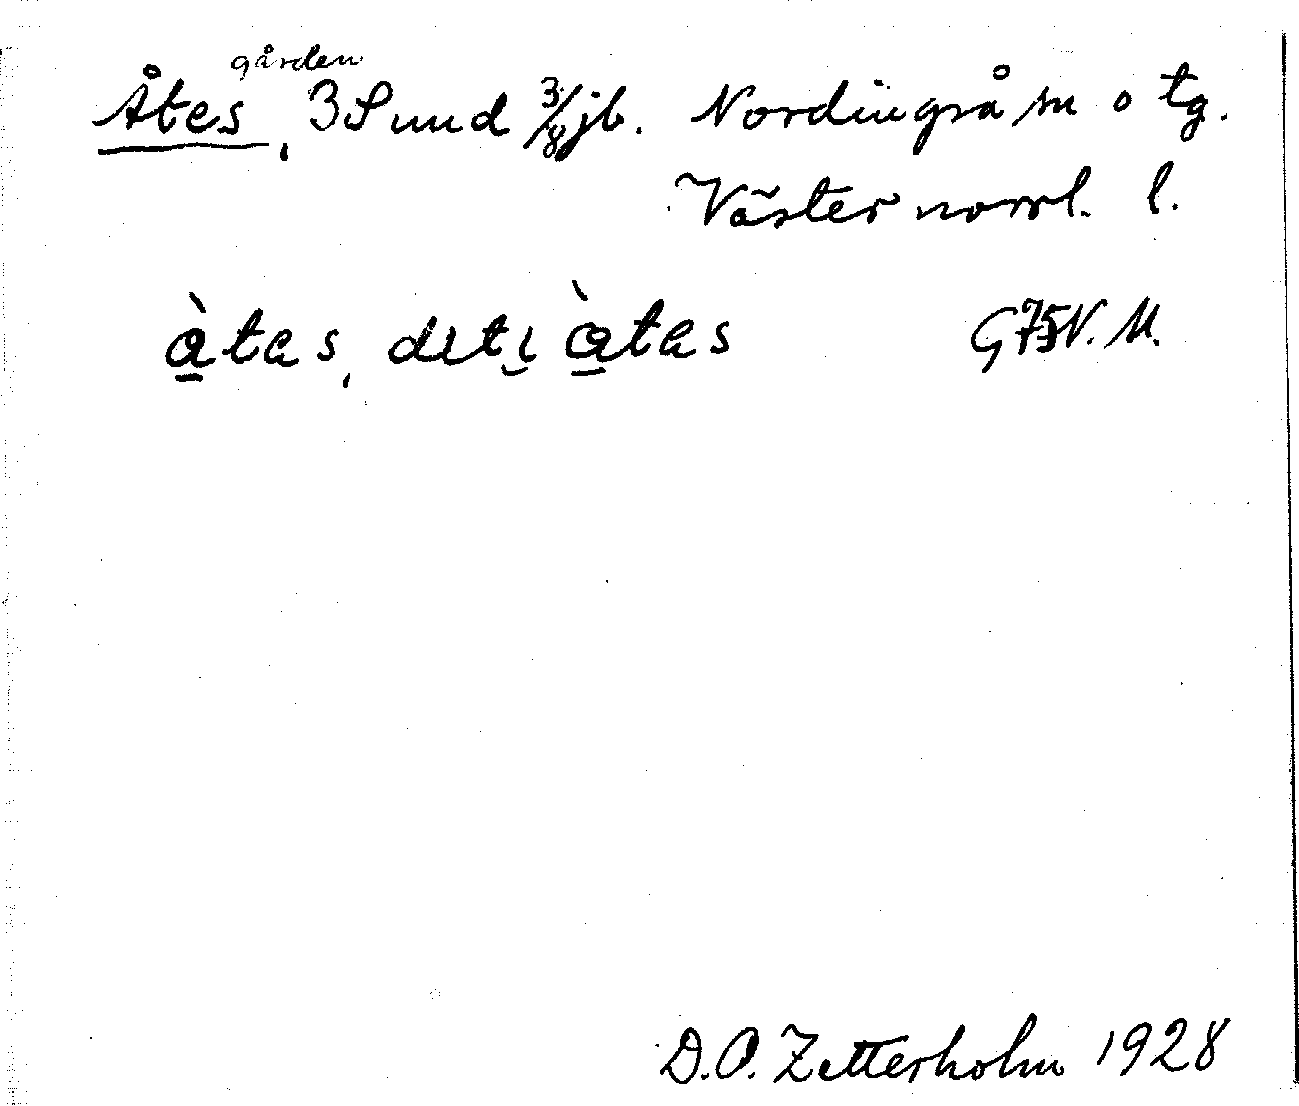 gården
Åtes, 3 Sund 3/8 jb. Nordingrå sn o tg.
Västernorrl. l.
àtas, dıtı̮ àtas G75N.M.
D.O. Zetterholm 1928